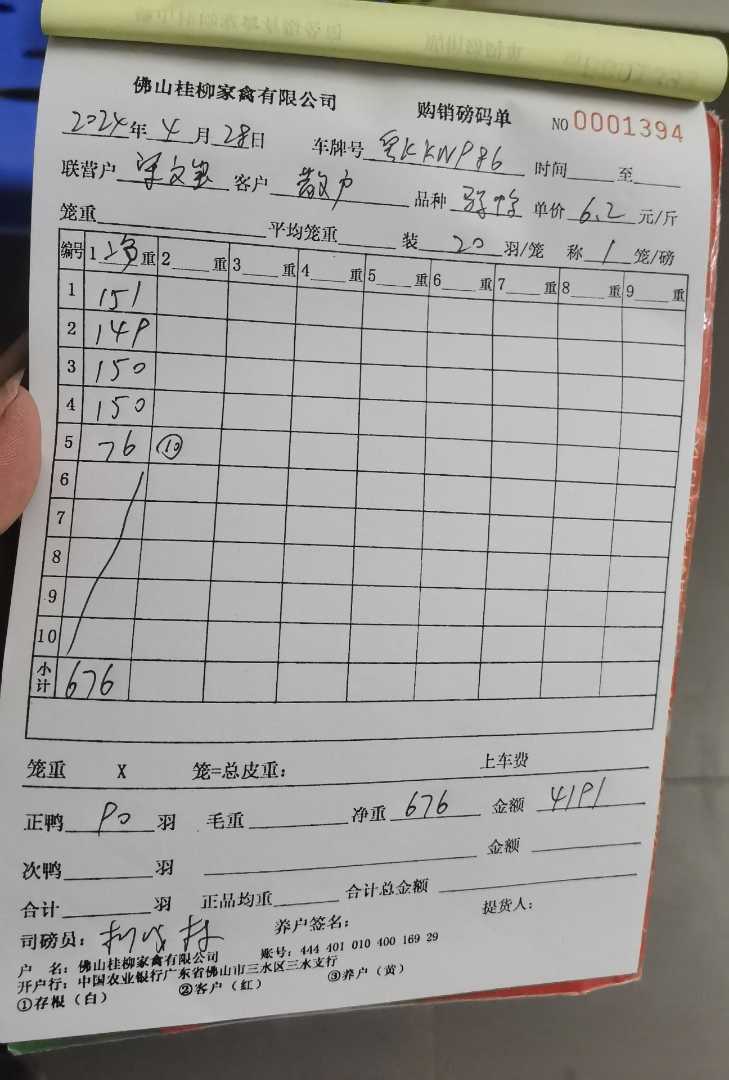 佛山桂柳家禽有限公司 购销磅码单 NO 0001394
2024年 4 月 28日 车牌号 粤KKNP86 时间 至
联营户 客户 散户 品种 单价 6.2 元/斤
笼重 平均笼重 装 20 羽/笼 称 1 笼/磅
编号 1 上负 重 2 重 3 重 4 重 5 重 6 重 7 重 8 重 9 重
1 151
2 149
3 150
4 150
5 76 ⑩
6
7
8
9
10
小计 676
笼重 X 笼=总皮重: 上车费
正鸭 90 羽 毛重 净重 676 金额 4191
次鸭 羽 金额
合计 羽 正品均重 合计总金额
司磅员: 养户签名: 提货人:
户 名: 佛山桂柳家禽有限公司 账号: 444 401 010 400 169 29
开户行: 中国农业银行广东省佛山市三水区三水支行
①存根(白) ②客户(红) ③养户(黄)